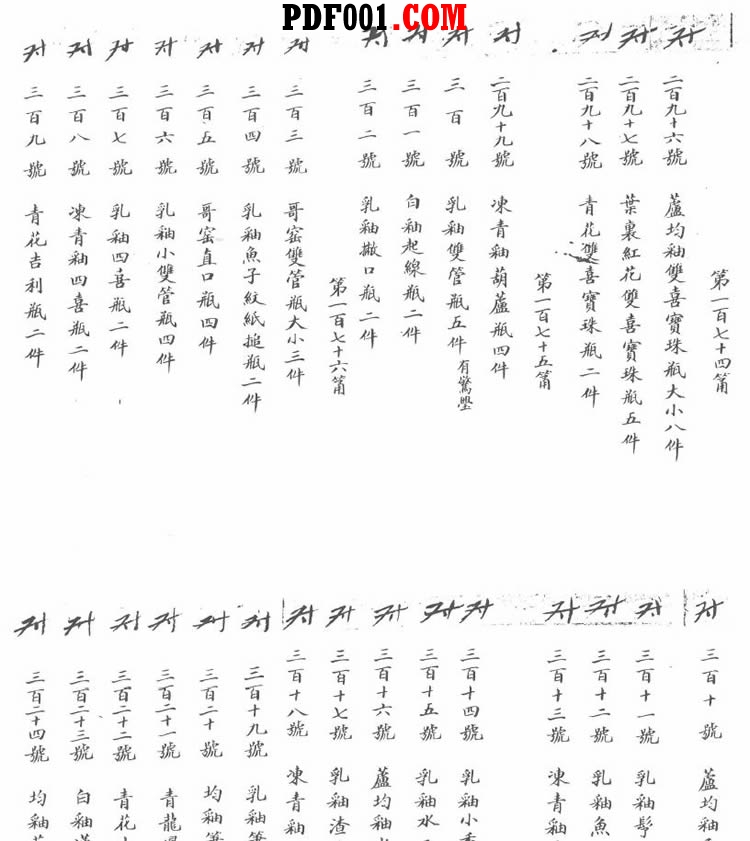 PDF001.COM
第一百七十四箱
二百九十六號 蘆均釉雙喜寶珠瓶大小八件
二百九十七號 葉裏紅花雙喜寶珠瓶五件
二百九十八號 青花雙喜寶珠瓶二件
第一百七十五箱
二百九十九號 凍青釉葫蘆瓶四件
三百號 乳釉雙管瓶五件 有驚璺
三百一號 白釉起線瓶二件
三百二號 乳釉撇口瓶二件
第一百七十六箱
三百三號 哥窑雙管瓶大小三件
三百四號 乳釉魚子紋紙搥瓶二件
三百五號 哥窑直口瓶四件
三百六號 乳釉小雙管瓶四件
三百七號 乳釉四喜瓶二件
三百八號 凍青釉四喜瓶二件
三百九號 青花吉利瓶二件
三百十號 蘆均釉
三百十一號 乳釉
三百十二號 乳釉魚
三百十三號 凍青釉
三百十四號 乳釉小
三百十五號 乳釉水
三百十六號 蘆均釉
三百十七號 乳釉渣
三百十八號 凍青釉
三百十九號 乳釉
三百二十號 均釉
三百二十一號 青龍
三百二十二號 青花
三百二十三號 白釉
三百二十四號 均釉